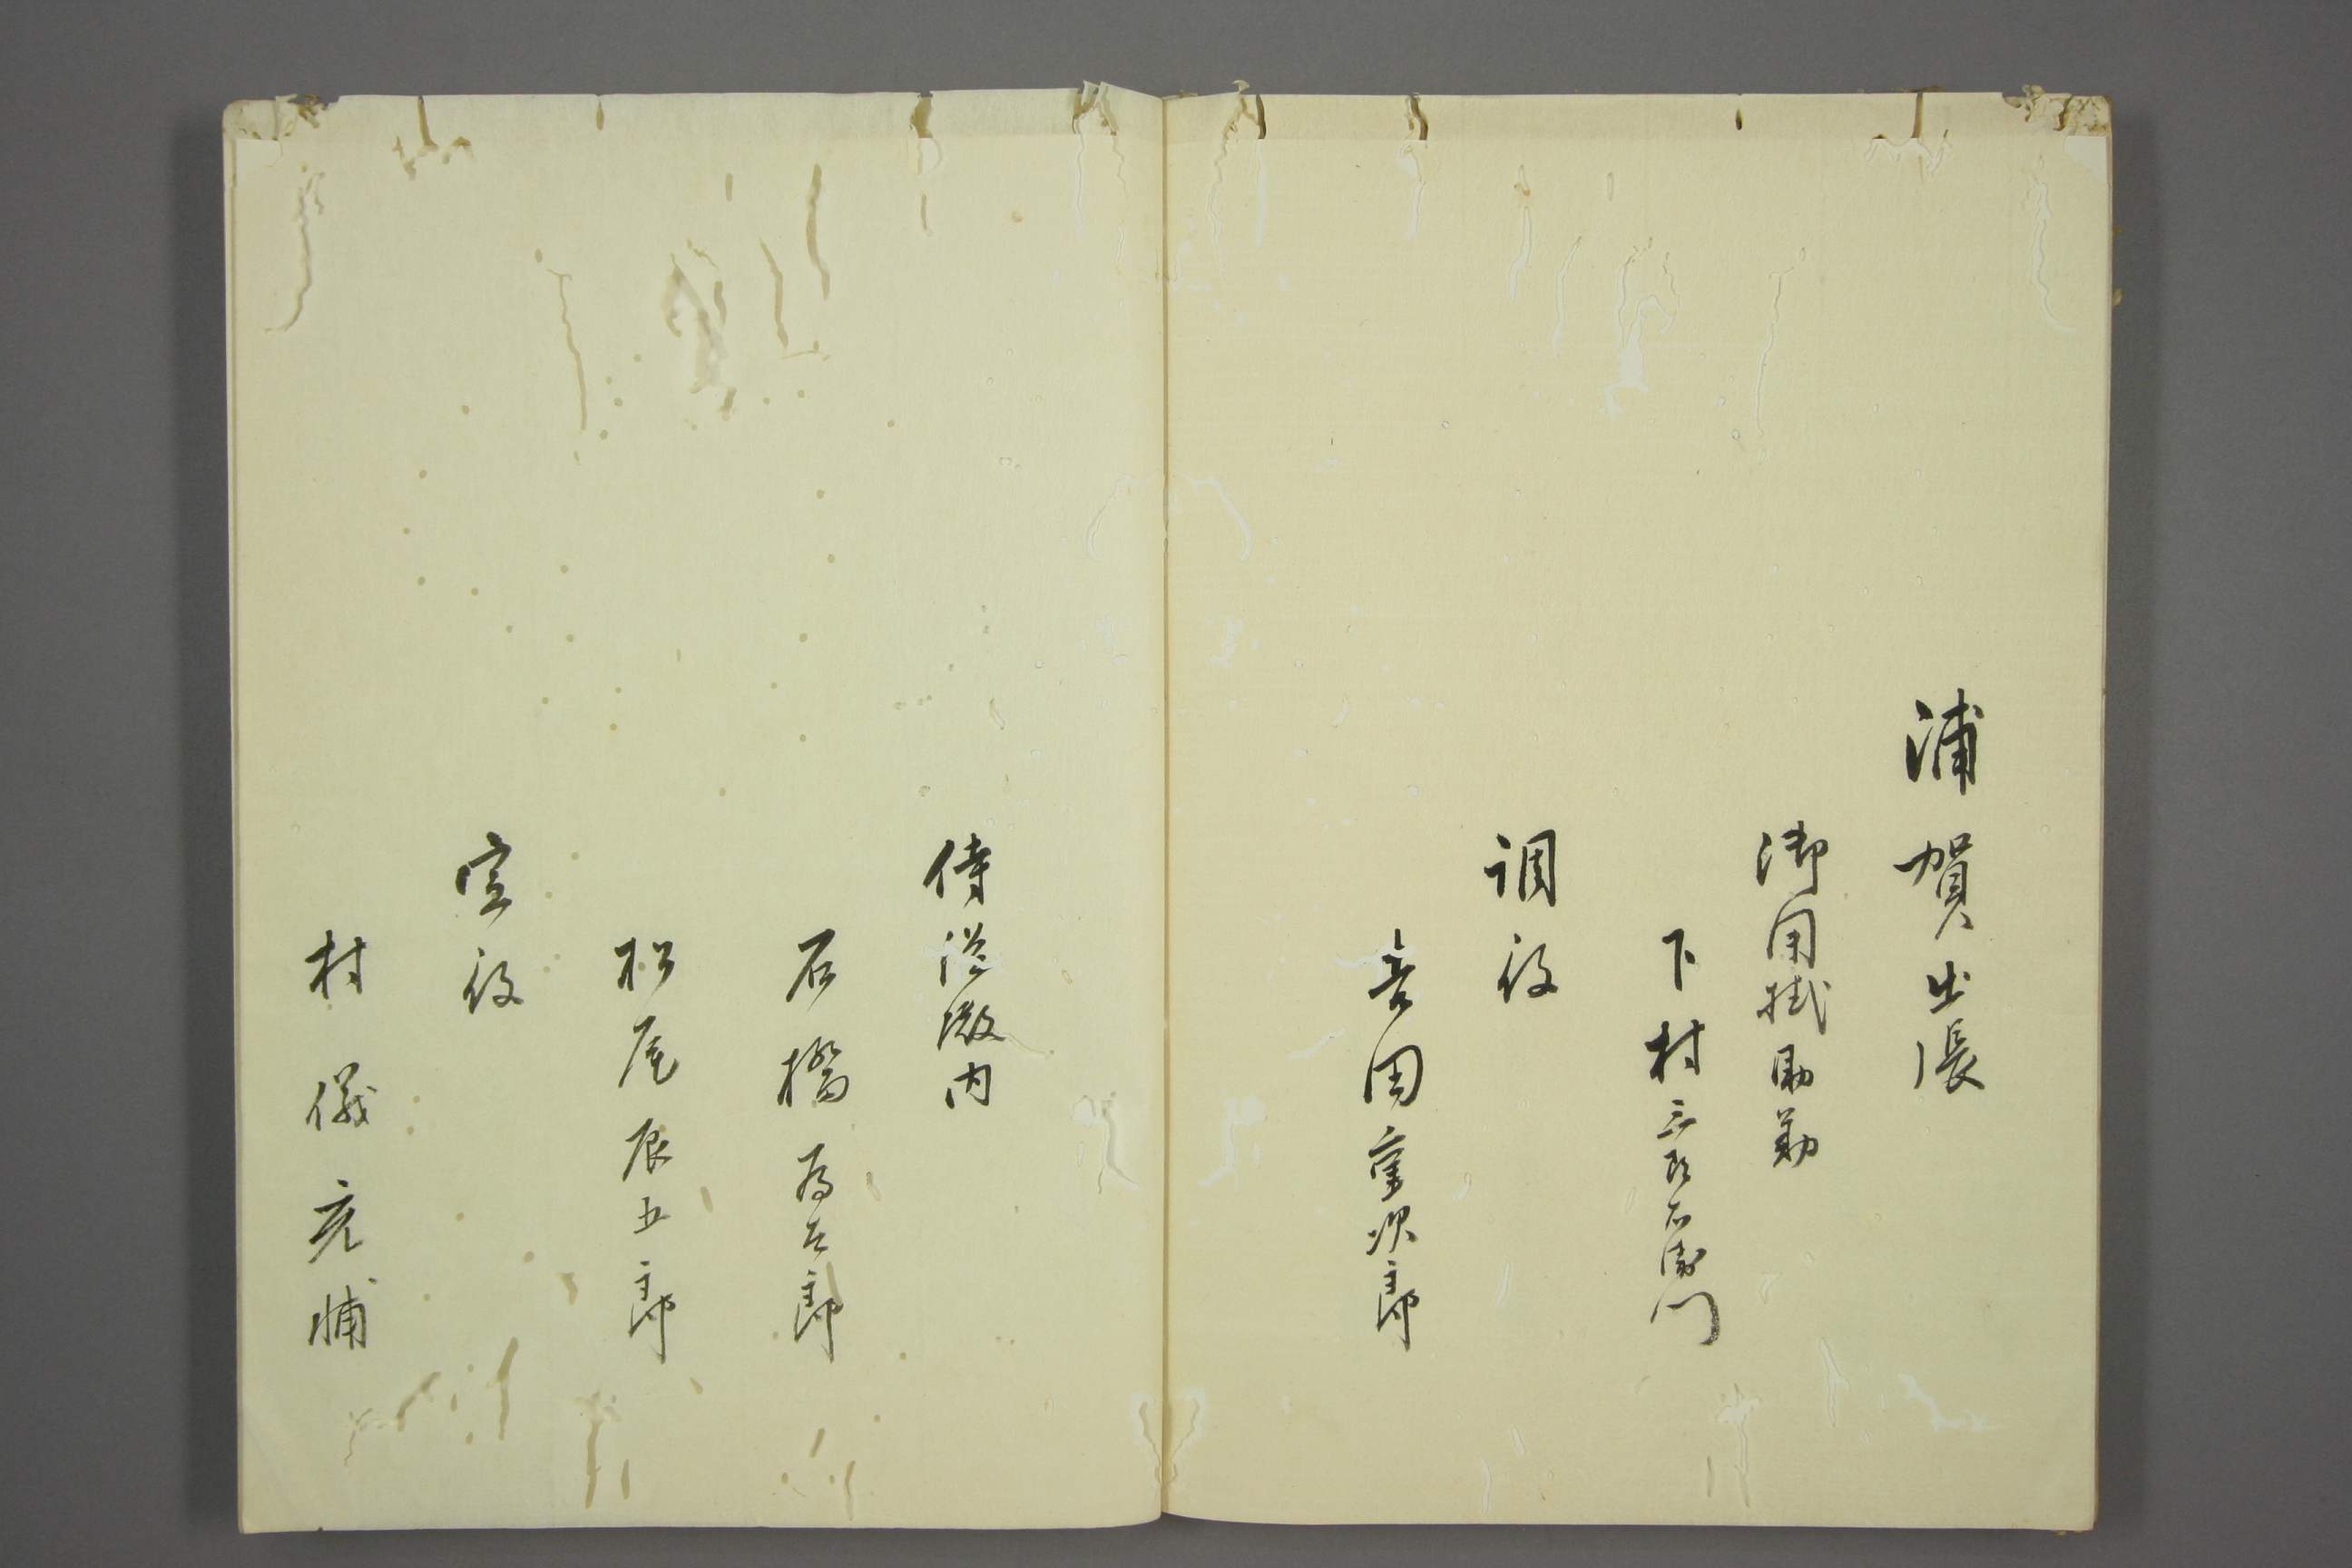 浦賀出張
御用掛助勤
下村三郎右衛門
調役
吉田重次郎
侍従徴内
石橋為五郎
松尾辰五郎
定役
村儀亮輔